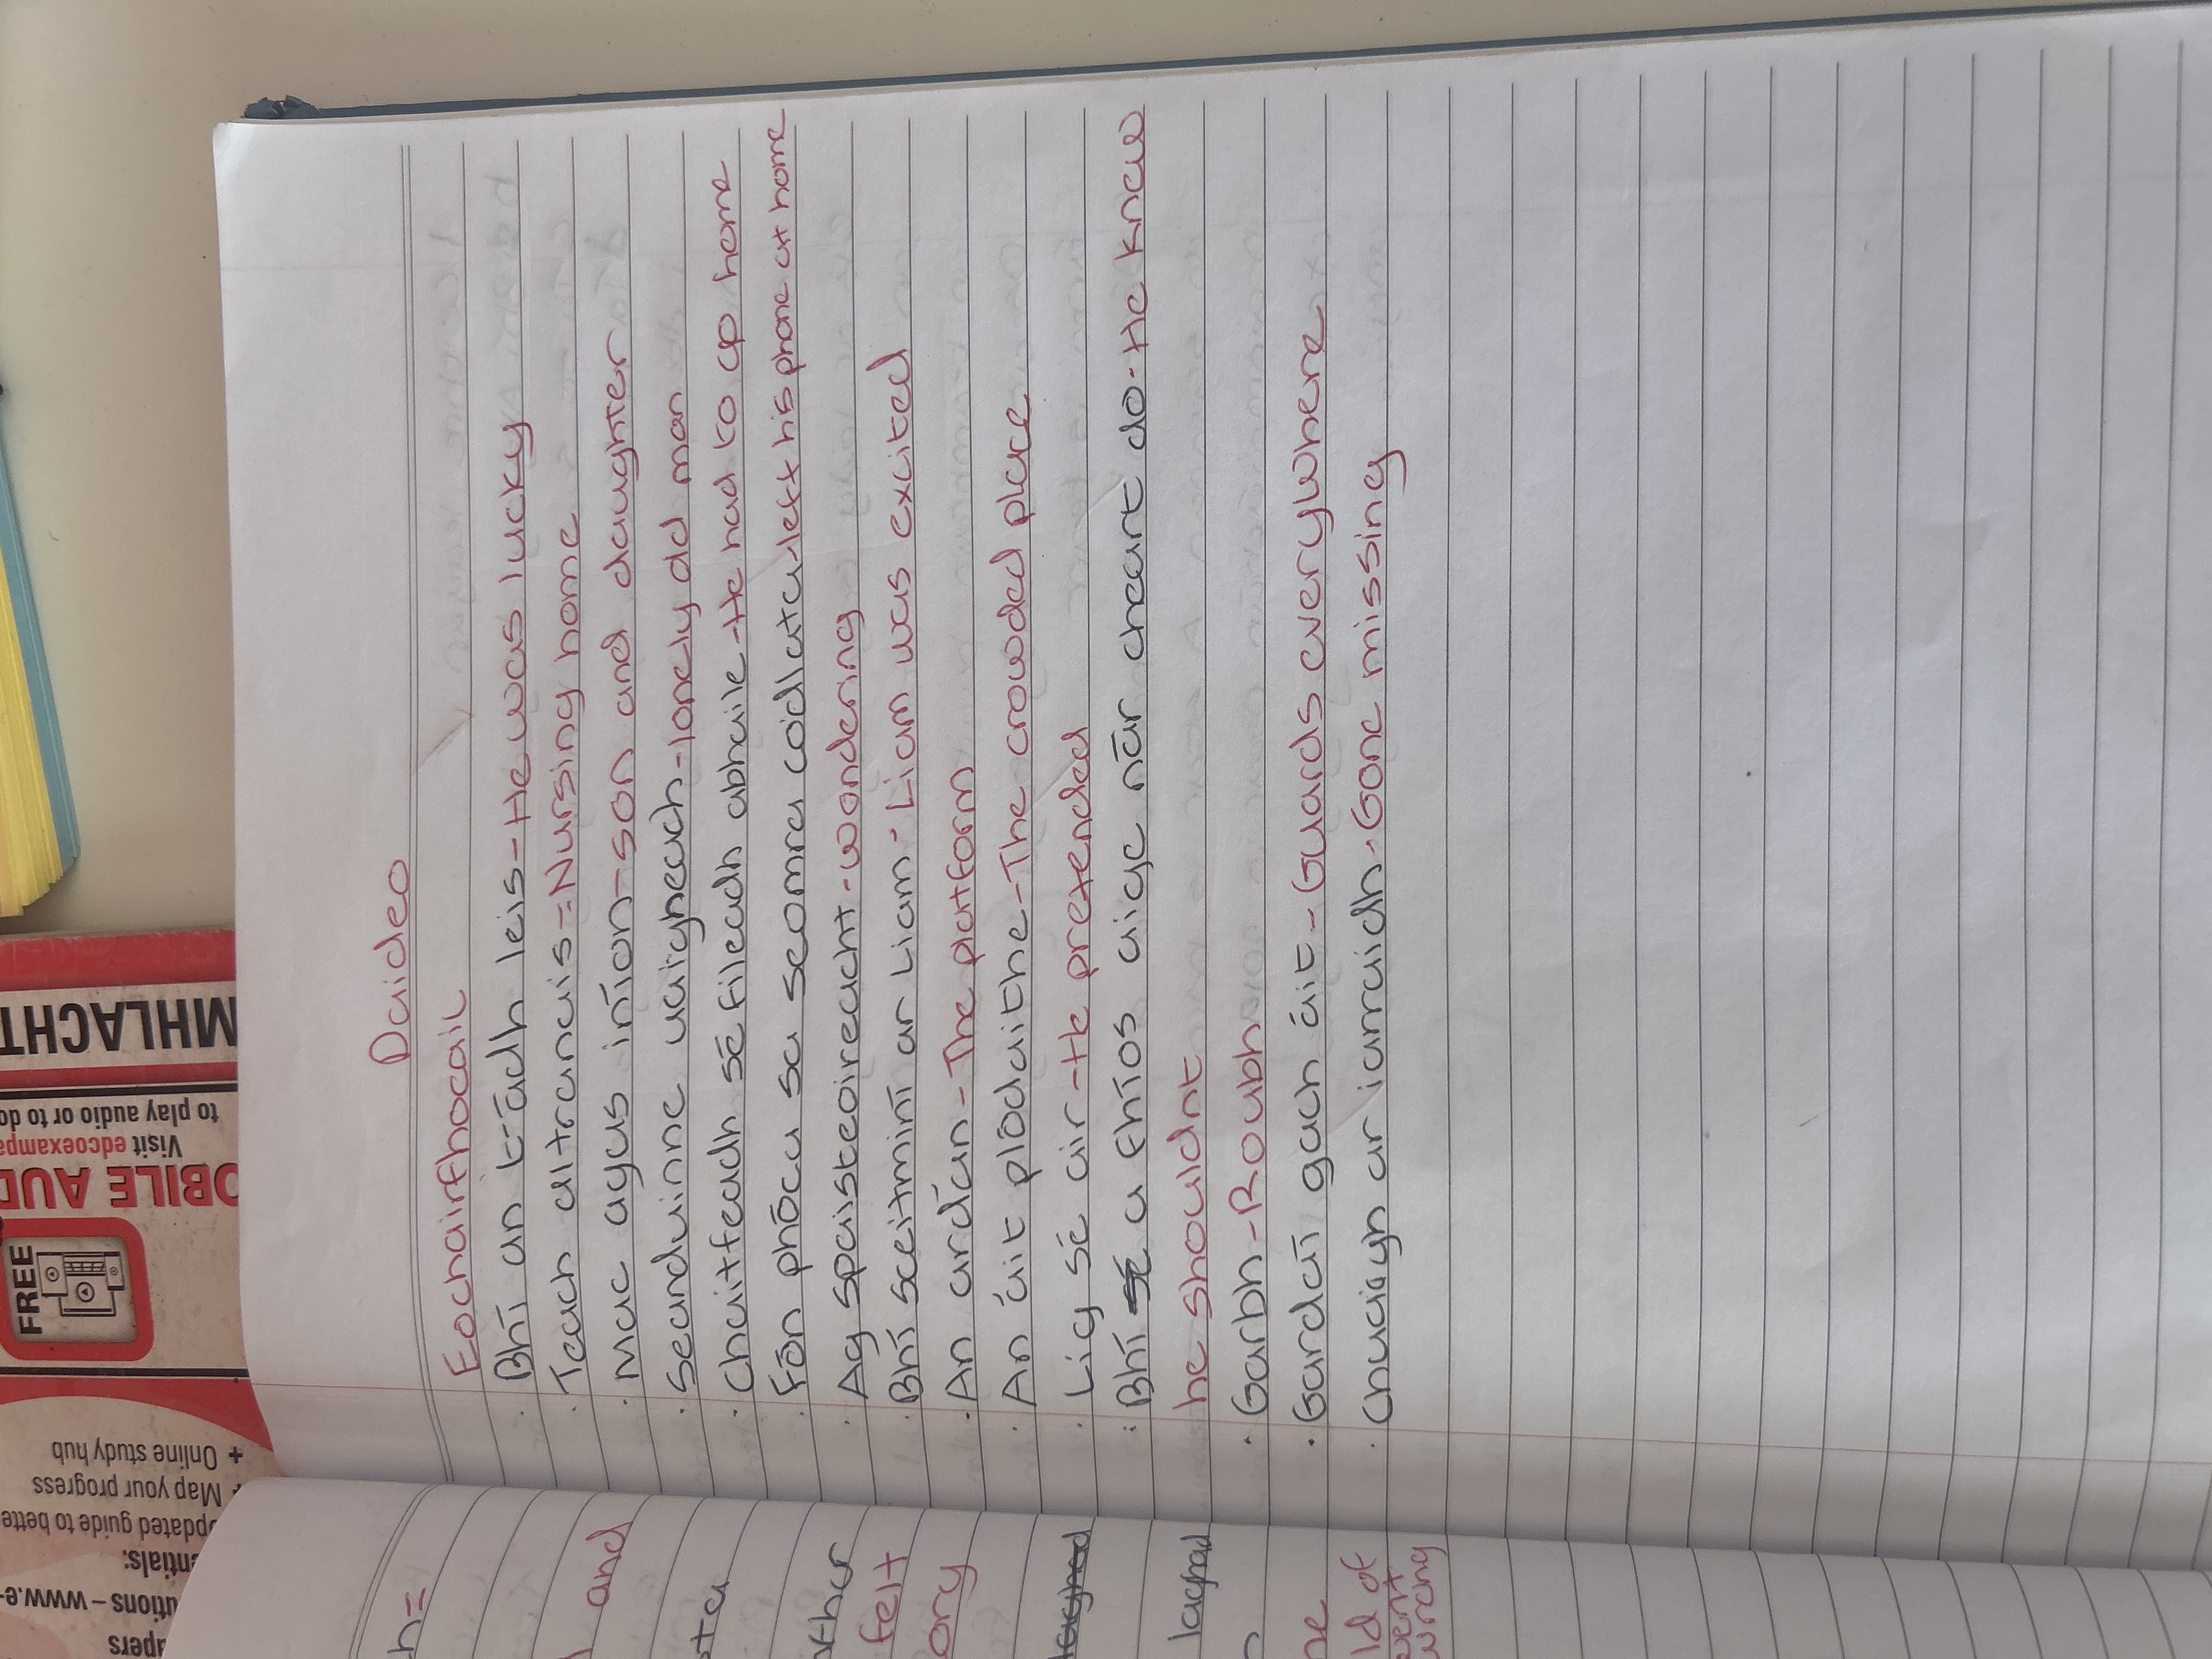 Daideo
Eochairfhocail
· Bhí an t-ádh leis - He was lucky
· Teach altranais = Nursing home
· Mac agus iníon - son and daughter
· Seanduine uaigneach - lonely old man
· Chaitfeadh sé filleadh abhaile - He had to go home
· Fón phóca sa seomra codlata - left his phone at home
· Ag spaisteoireacht - wondering
· Bhí sceitminí ar Liam - Liam was excited
· An ardán - The platform
· An áit plódaithe - The crowded place
· Lig sé air - He pretended
· Bhí sé a fhios aige nár cheart do - He knew
he shouldnt
· Garbh - Roubh
· Gardaí gach áit - Guards everywhere
· Chuaigh ar iarraidh - Gone missing
h =
and
felt
ory
laghad
ne
ld of
went
wrong
MHLACHT
to play audio or to do
Visit edcoexampa
OBILE AUD
FREE
+ Online study hub
+ Map your progress
pdated guide to bette
entials:
utions – www.e-
apers